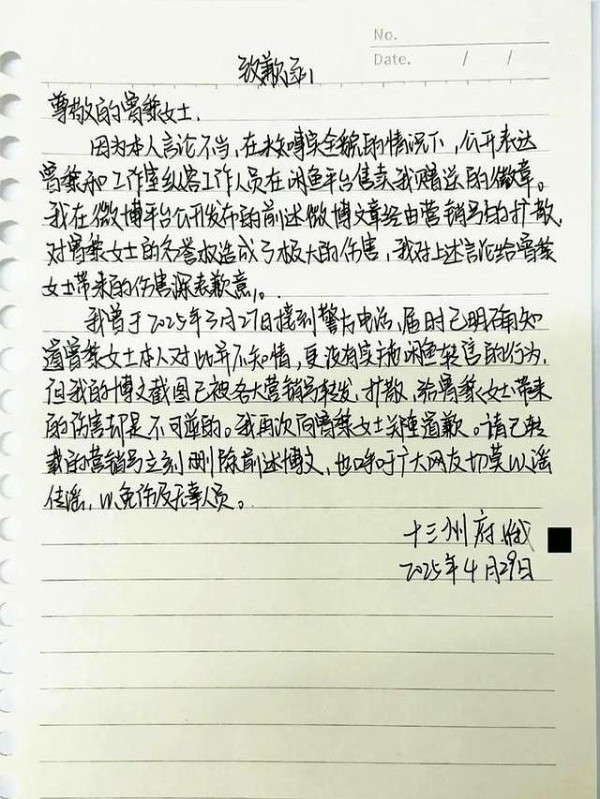 No.
Date. / /
致歉词
尊敬的曾黎女士，
因为本人言论不当，在未知晓全貌的情况下，公开表达
曾黎和工作室纵容工作人员在闲鱼平台售卖我赠送的徽章。
我在微博平台公开发布的前述微博文章经由营销号的扩散，
对曾黎女士的名誉权造成了极大的伤害，我对上述言论给曾黎
女士带来的伤害深表歉意。
我曾于2025年3月27日接到警方电话，届时已明确知
道曾黎女士本人对此并不知情，更没有实施闲鱼转售的行为，
但我的博文截图已被各大营销号转发、扩散，给曾黎女士带来
的伤害却是不可逆的。我再次向曾黎女士关连道歉。请已转
载的营销号立刻删除前述博文，也呼吁广大网友切莫以谣
传谣，以免伤及无辜人员。
十三州府
2025年4月29日